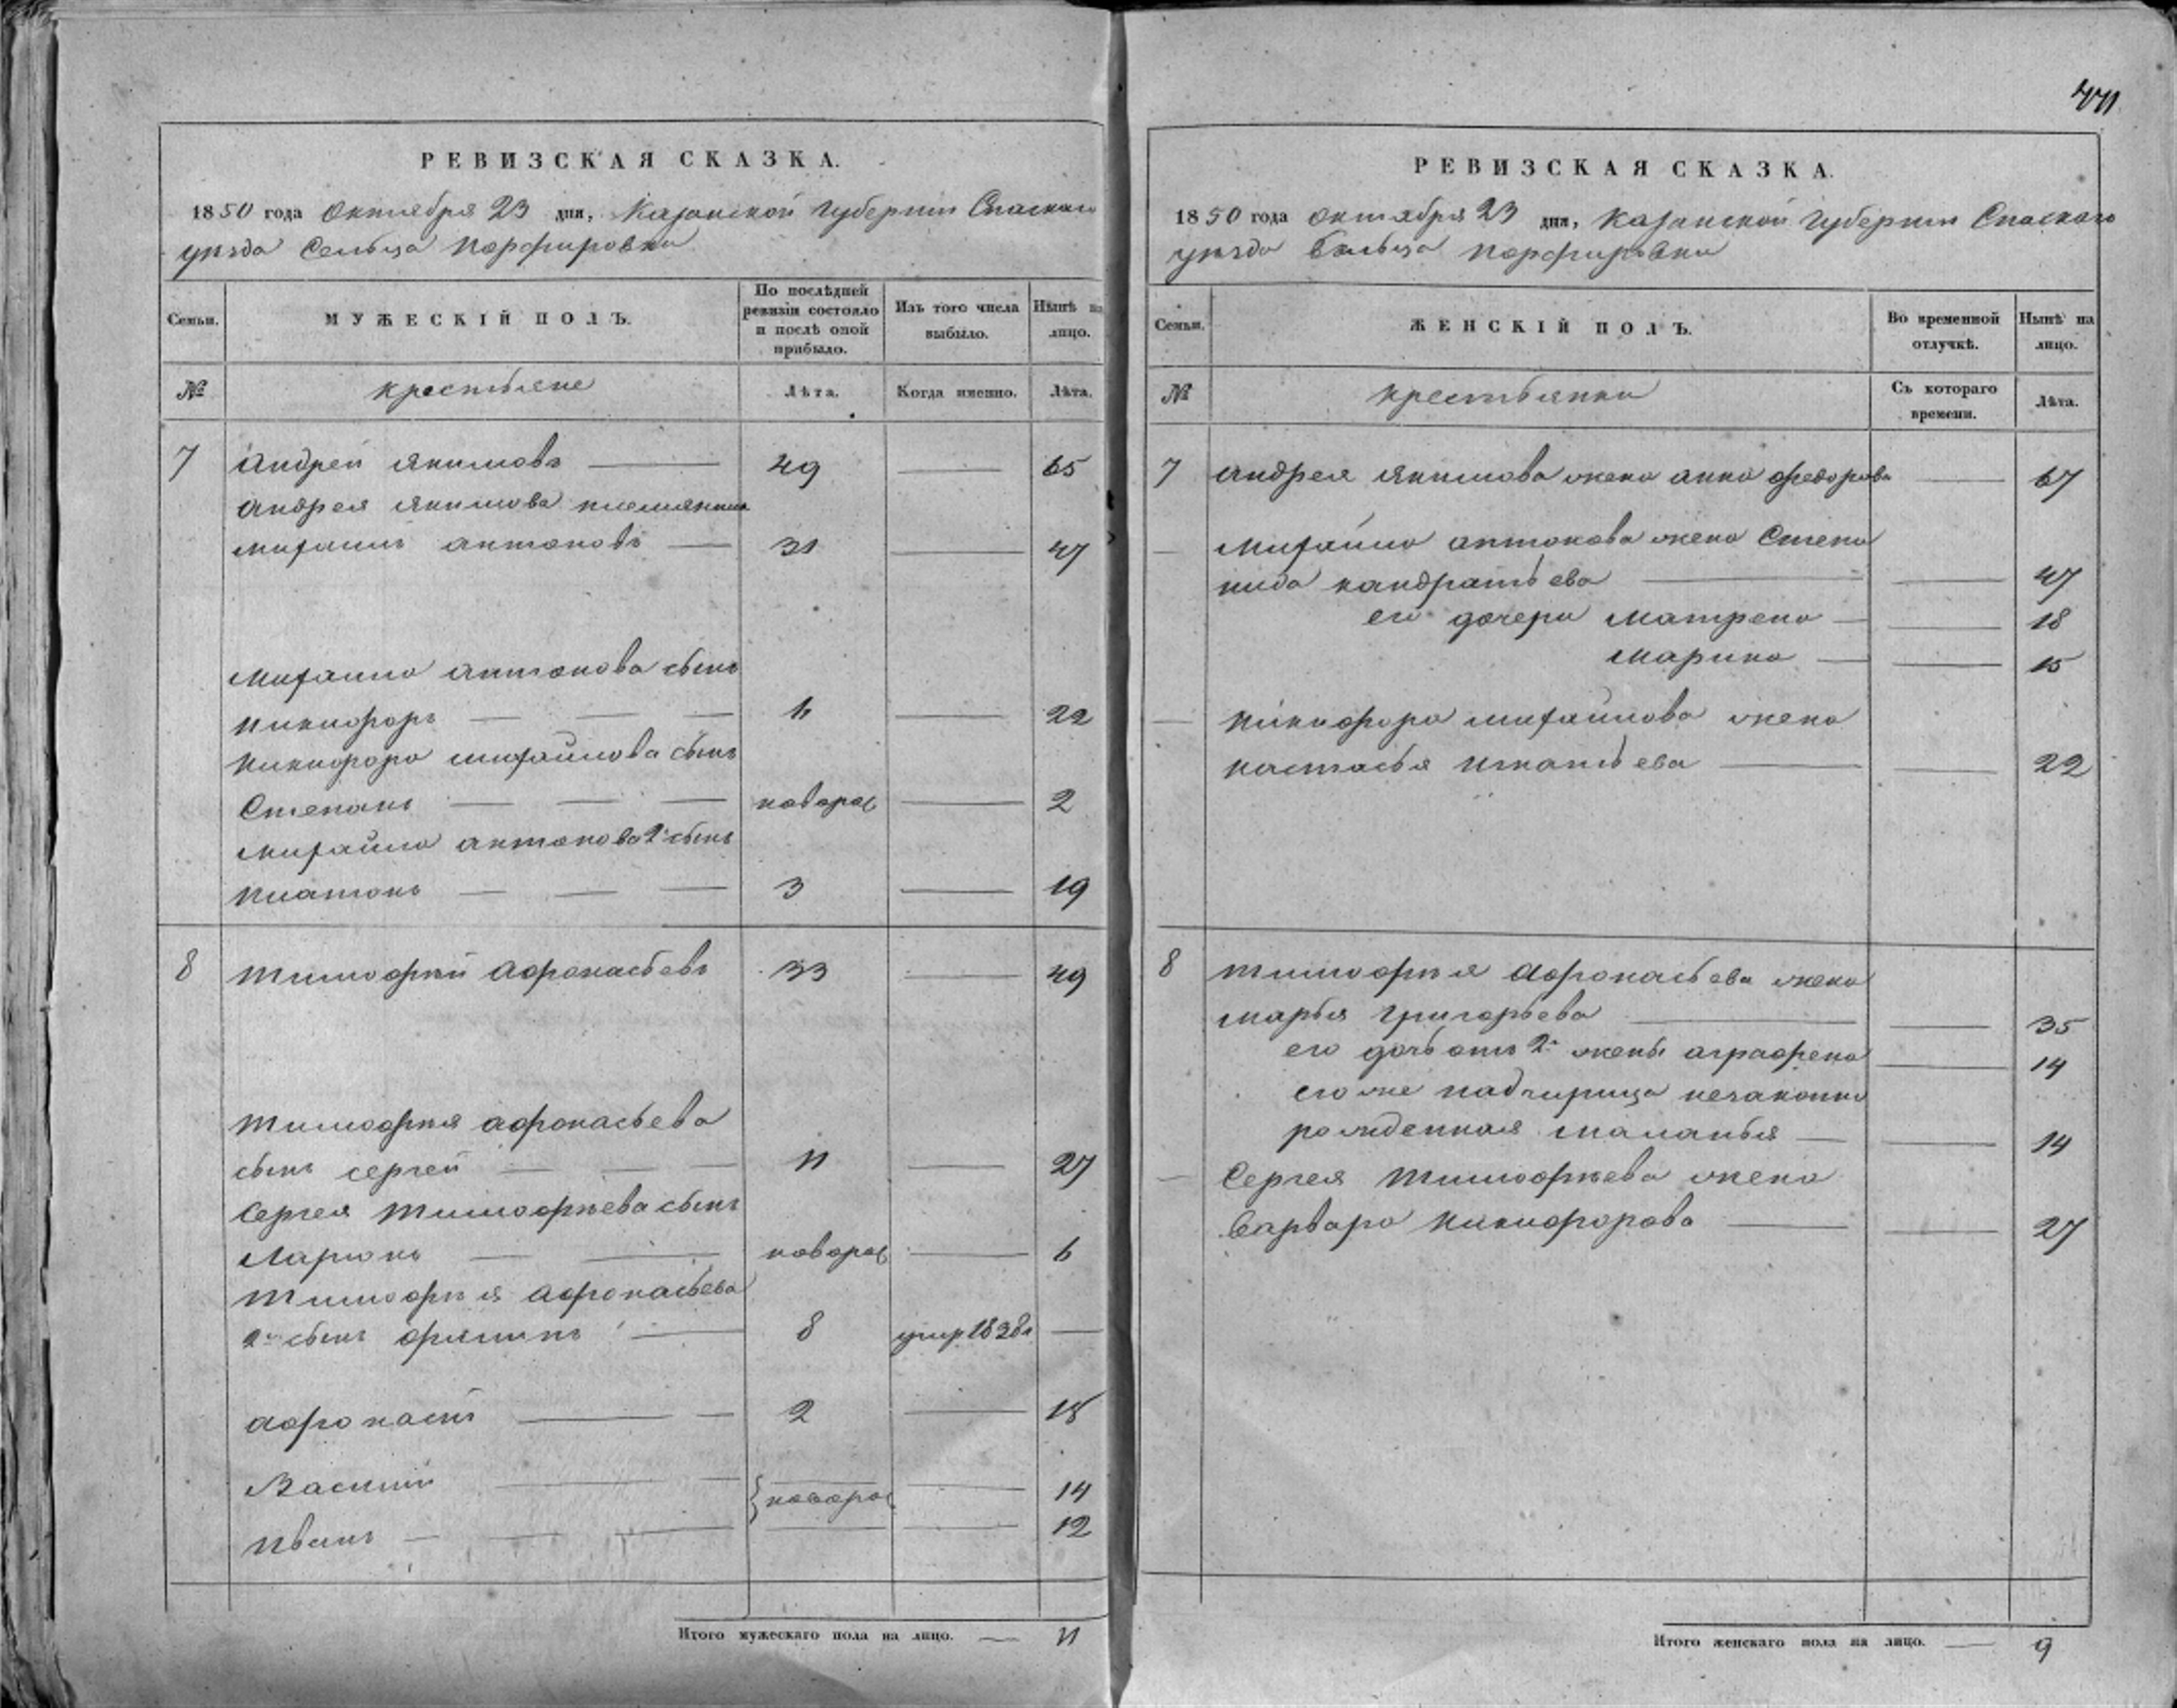 РЕВИЗСКАЯ СКАЗКА.
1850 года Октября 23 дня, Казанской Губернии Спаскаго
уезда Сельца Порфировки
Семьи. МУЖЕСКІЙ ПОЛЪ. По послѣдней ревизіи состояло и послѣ оной прибыло. Изъ того числа выбыло. Нынѣ на лицо.
№ крестьяне Лѣта. Когда именно. Лѣта.
7 Андрей Якимовъ — 49 — 65
Андрея Якимова племянник
Михаилъ Антоновъ — 31 — 47
Михаило Антонова сынъ
Никифоръ — — — 6 — 22
Никифора Михайлова сынъ
Степанъ — — — новорож — 2
Михайло Антонова 2й сынъ
Платонъ — — — 3 — 19
8 Тимофей Афонасьевъ 33 — 49
Тимофея Афонасьева
сынъ Сергей — — — 11 — 27
Сергея Тимофеева сынъ
Ларионъ — — новорож — 6
Тимофея Афонасьева
2й сынъ Филипъ — 8 умер 1838 —
Афонасий — — 2 — 18
Василий — — — 14
} новорож
Иванъ — — — — — 12
Итого мужескаго пола на лицо. — 11
441
РЕВИЗСКАЯ СКАЗКА.
1850 года Октября 23 дня, Казанской Губернии Спаскаго
уезда Сельца Порфировки
Семьи. ЖЕНСКІЙ ПОЛЪ. Во временной отлучкѣ. Нынѣ на лицо.
№ крестьянки Съ котораго времени. Лѣта.
7 Андрея Якимова жена Анна Федорова — 67
— Михайло Антонова жена Степа
нида Кандратьева — — 47
его дочери Матрена — — 18
Марина — — 15
— Никифора Михайлова жена
Настасья Игнатьева — — 22
8 Тимофея Афонасьева жена
Марья Григорьева — — 35
его дочь отъ 2й жены Аграфена — 14
его же падчирица незаконно
рожденная Маланья — — 14
— Сергея Тимофеева жена
Варвара Никифорова — — 27
Итого женскаго пола на лицо. — 9